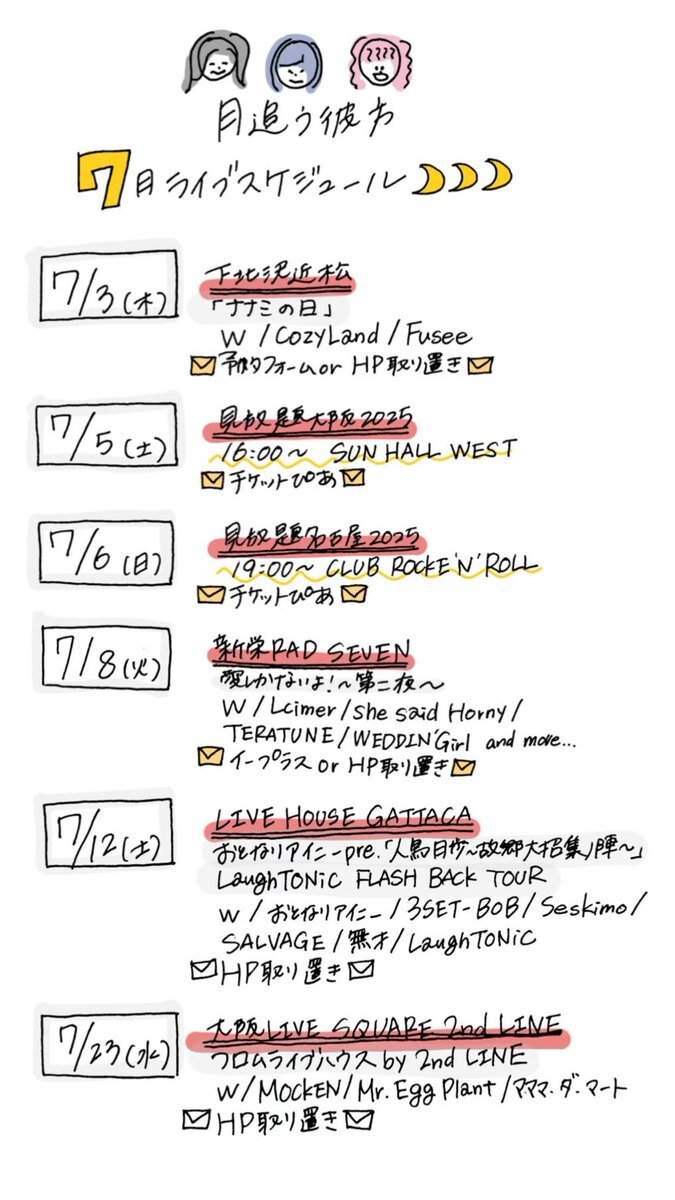 月追う彼方
7月ライブスケジュール
7/3(木)
下北沢近松
「ナナミの日」
W/COZYLAND/Fusee
予約フォームor HP取り置き
7/5(土)
見放題大阪2025
16:00～ SUN HALL WEST
チケットぴあ
7/6(日)
見放題名古屋2025
19:00～ CLUB ROCK'N'ROLL
チケットぴあ
7/8(火)
新栄RAD SEVEN
愛しかないよ!～第二夜～
W/Lcimer/she said Horny/
TERATUNE/WEDDIN'Girl and more...
イープラス or HP取り置き
7/12(土)
LIVE HOUSE GATTACA
おとなりアイニーpre.「人鳥日歩～故郷大招集ノ陣～」
LaughTONiC FLASH BACK TOUR
W/おとなりアイニー/3SET-BOB/Seskimo/
SALVAGE/無才/LaughTONiC
HP取り置き
7/23(水)
大阪LIVE SQUARE 2nd LINE
フロムライブハウス by 2nd LINE
W/MOCKEN/Mr.Egg Plant/ママママ.ダ.マート
HP取り置き